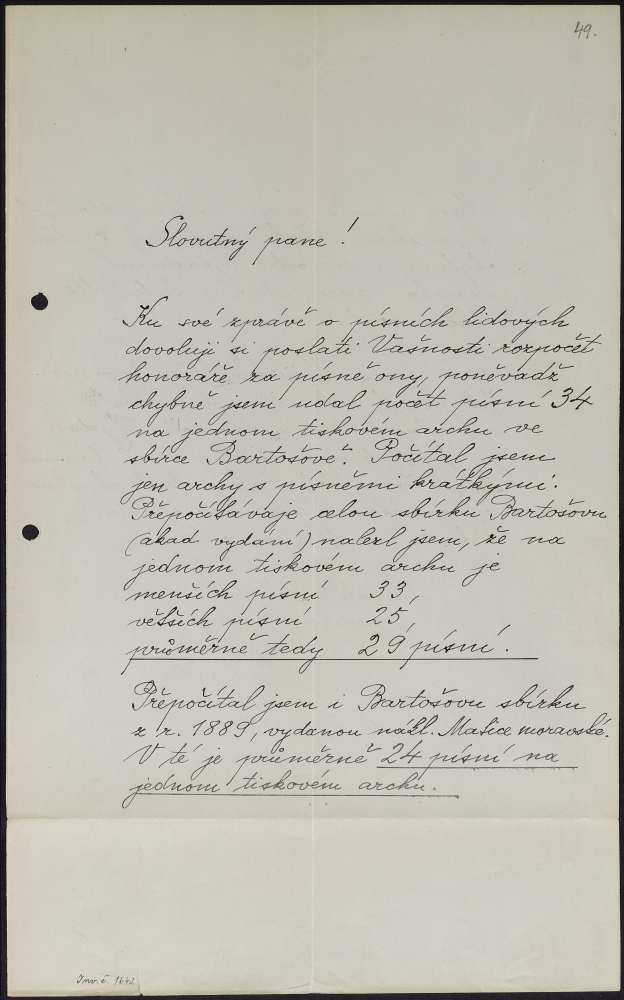 49.
Slovutný pane!
Ku své zprávě o písních lidových
dovoluji si poslati Vašnosti rozpočet
honoráře za písně ony, poněvadž
chybně jsem udal počet písní 34
na jednom tiskovém archu ve
sbírce Bartošově. Počítal jsem
jen archy s písněmi krátkými.
Přepočítávaje celou sbírku Bartošovu
(akad vydání) nalezl jsem, že na
jednom tiskovém archu je
menších písní 33,
větších písní 25,
průměrně tedy 29 písní.
Přepočítal jsem i Bartošovu sbírku
z r. 1889, vydanou nákl. Matice moravské.
V té je průměrně 24 písní na
jednom tiskovém archu.
Inv. č.